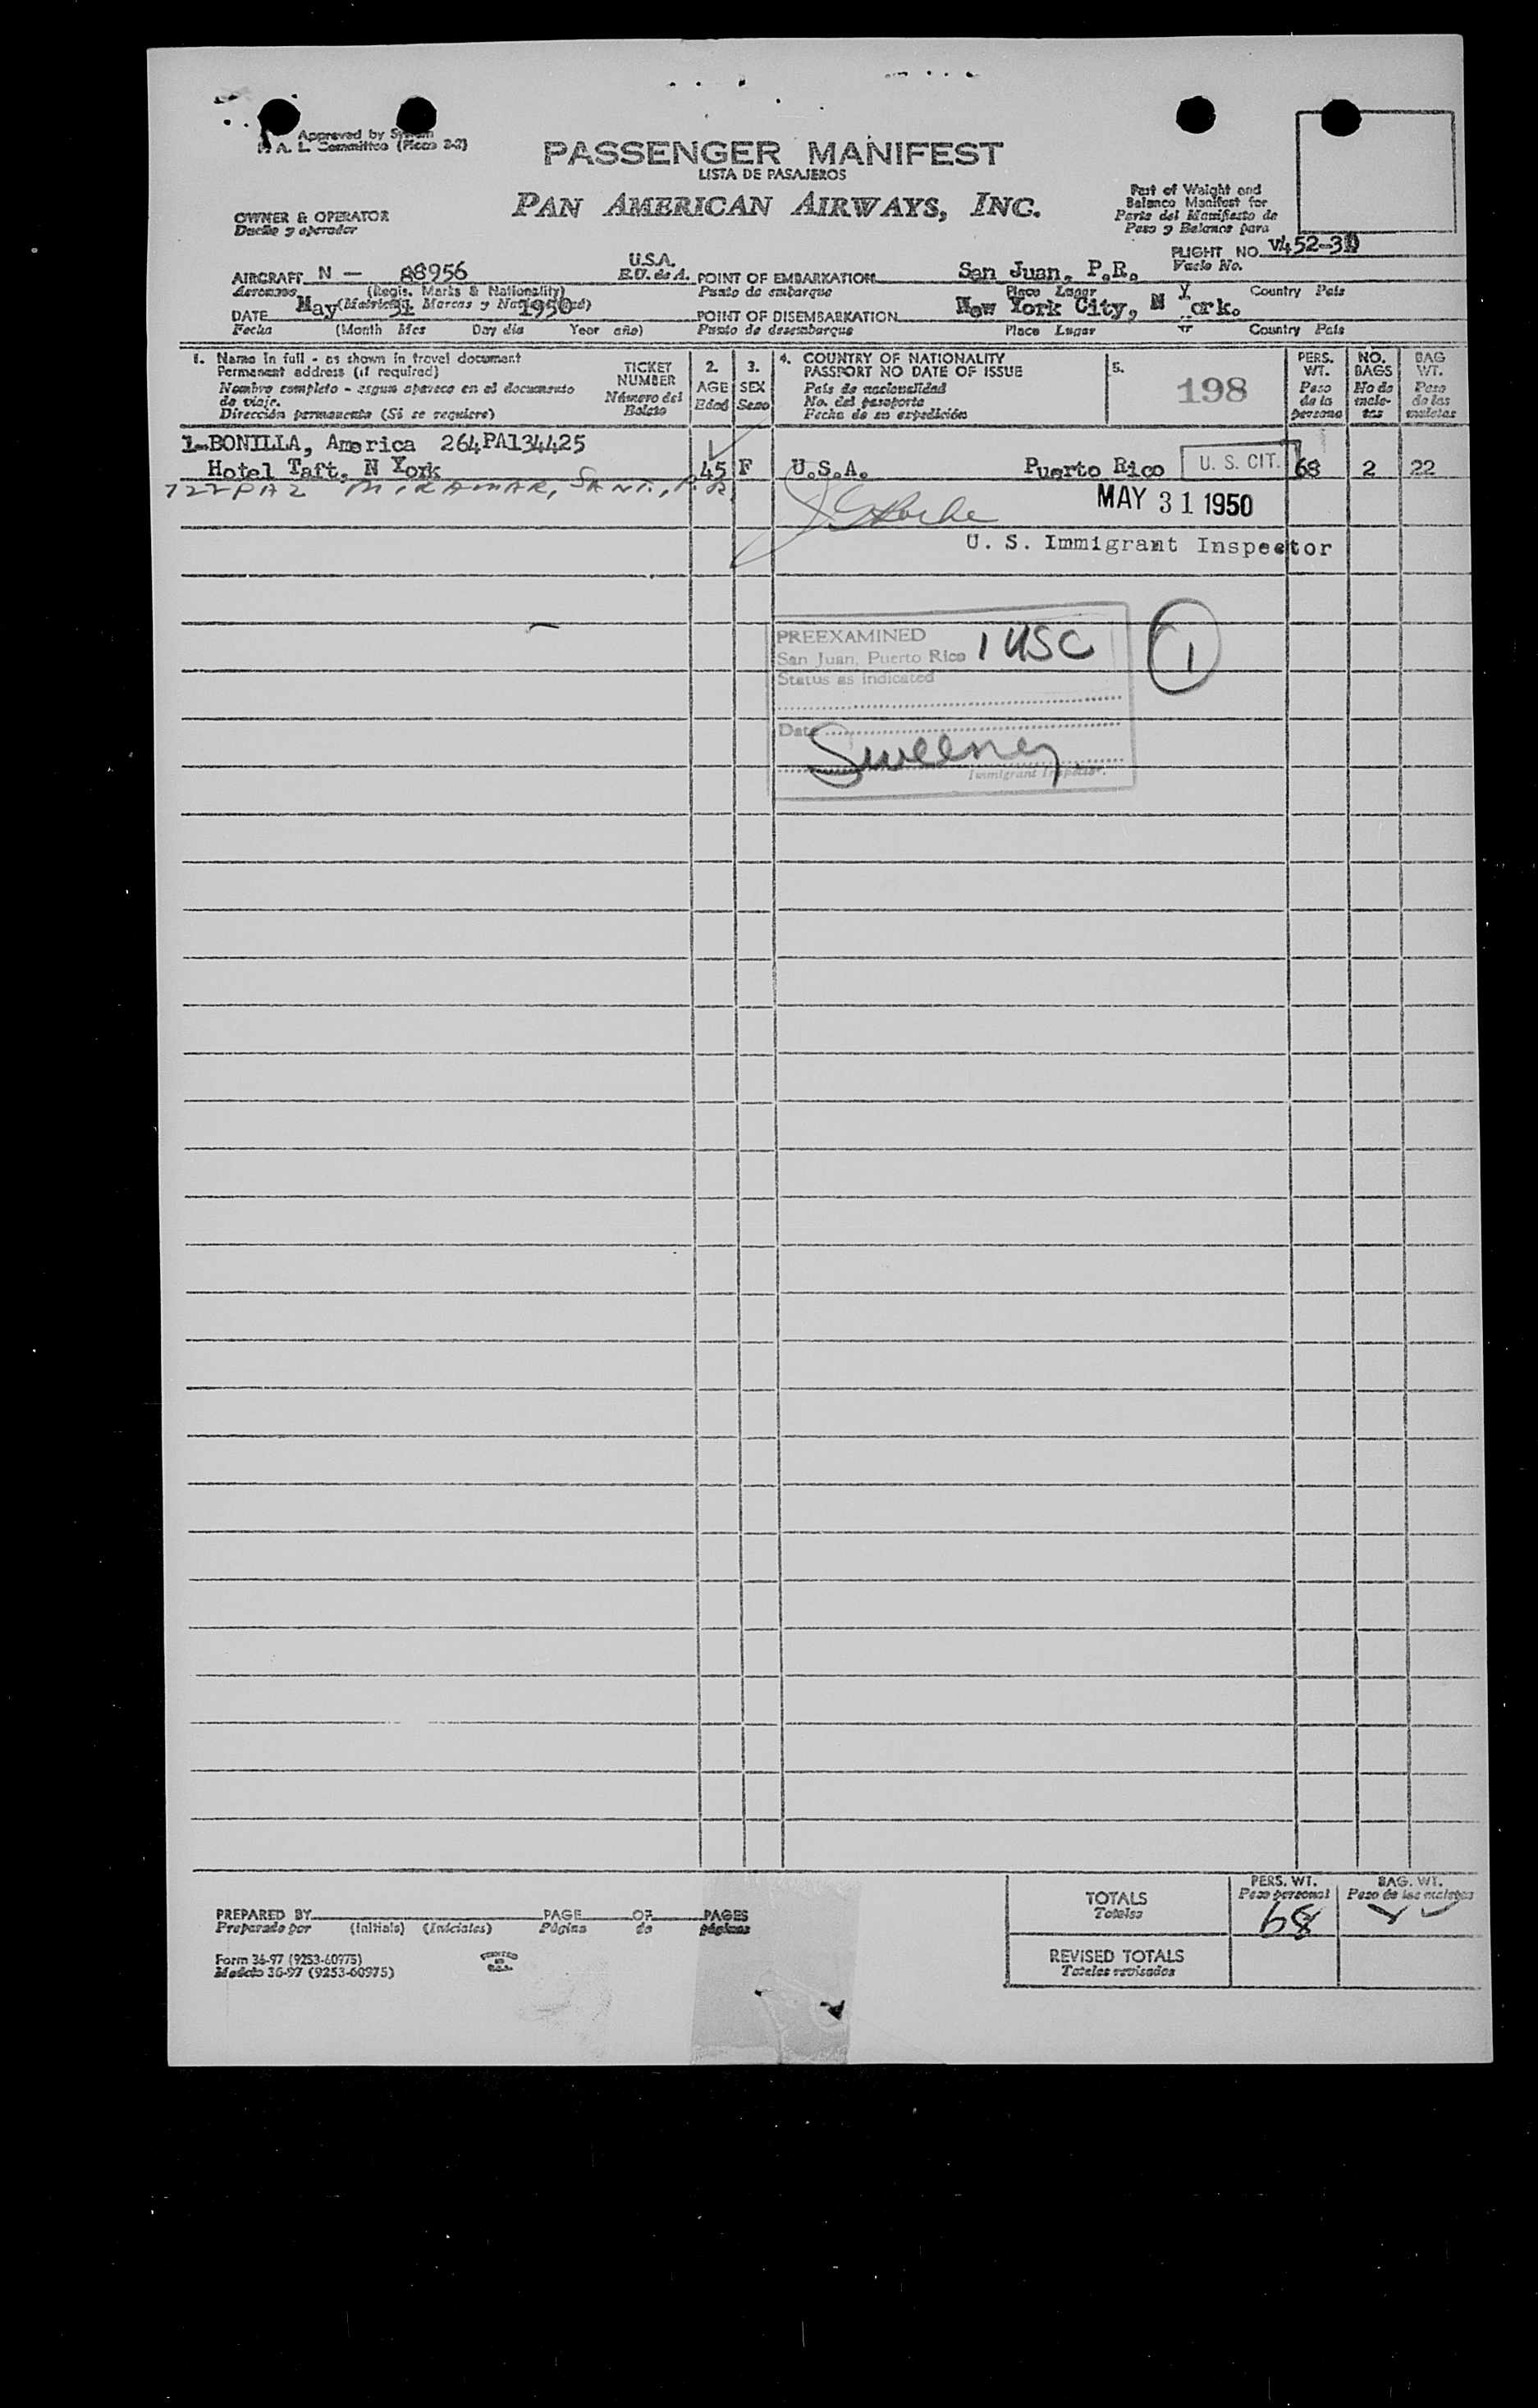 Approved by System
P. A. L. Committee (Picao 2-2)
PASSENGER MANIFEST
LISTA DE PASAJEROS
PAN AMERICAN AIRWAYS, INC.
Part of Weight and
Balance Manifest for
Parte del Manifiesto de
Peso y Balance para
OWNER & OPERATOR
Dueño y operador
FLIGHT NO. V452-31
Vuelo No.
AIRCRAFT N — 88956 U.S.A.
E.U. de A.
POINT OF EMBARKATION San Juan, P.R.
Aeronave (Regis. Marks & Nationality) Punto de embarque Place Lugar Country País
(Matrícula, Marcas y Nacionalidad)
DATE May 31 1950 POINT OF DISEMBARKATION New York City, N York.
Fecha (Month Mes Day día Year año) Punto de desembarque Place Lugar Country País
1. Name in full - as shown in travel document
Permanent address (if required)
Nombre completo - según aparece en el documento
de viaje.
Dirección permanente (Si se requiere)
TICKET
NUMBER
Número del
Boleto
2.
AGE
Edad
3.
SEX
Sexo
4. COUNTRY OF NATIONALITY
PASSPORT NO DATE OF ISSUE
País de nacionalidad
No. del pasaporte
Fecha de su expedición
5.
198
PERS.
WT.
Peso
de la
persona
NO.
BAGS
No de
male-
tas
BAG
WT.
Peso
de las
maletas
1-BONILLA, America 264PA134425
Hotel Taft, N York 45 F U.S.A. Puerto Rico U. S. CIT. 68 2 22
722 PAZ MIRAMAR, SANT., P.R.
MAY 31 1950
U. S. Immigrant Inspector
PREEXAMINED 1 USC
San Juan, Puerto Rico
Status as indicated
1
Date
Sweeney
Immigrant Inspector.
TOTALS
Totales
PERS. WT.
Peso personal
68
BAG. WT.
Peso de las maletas
REVISED TOTALS
Totales revisados
PREPARED BY PAGE OF PAGES
Preparado por (Initials) (Iniciales) Página de páginas
Form 36-97 (9253-60975)
Modelo 36-97 (9253-60975)
PRINTED
IN
U.S.A.